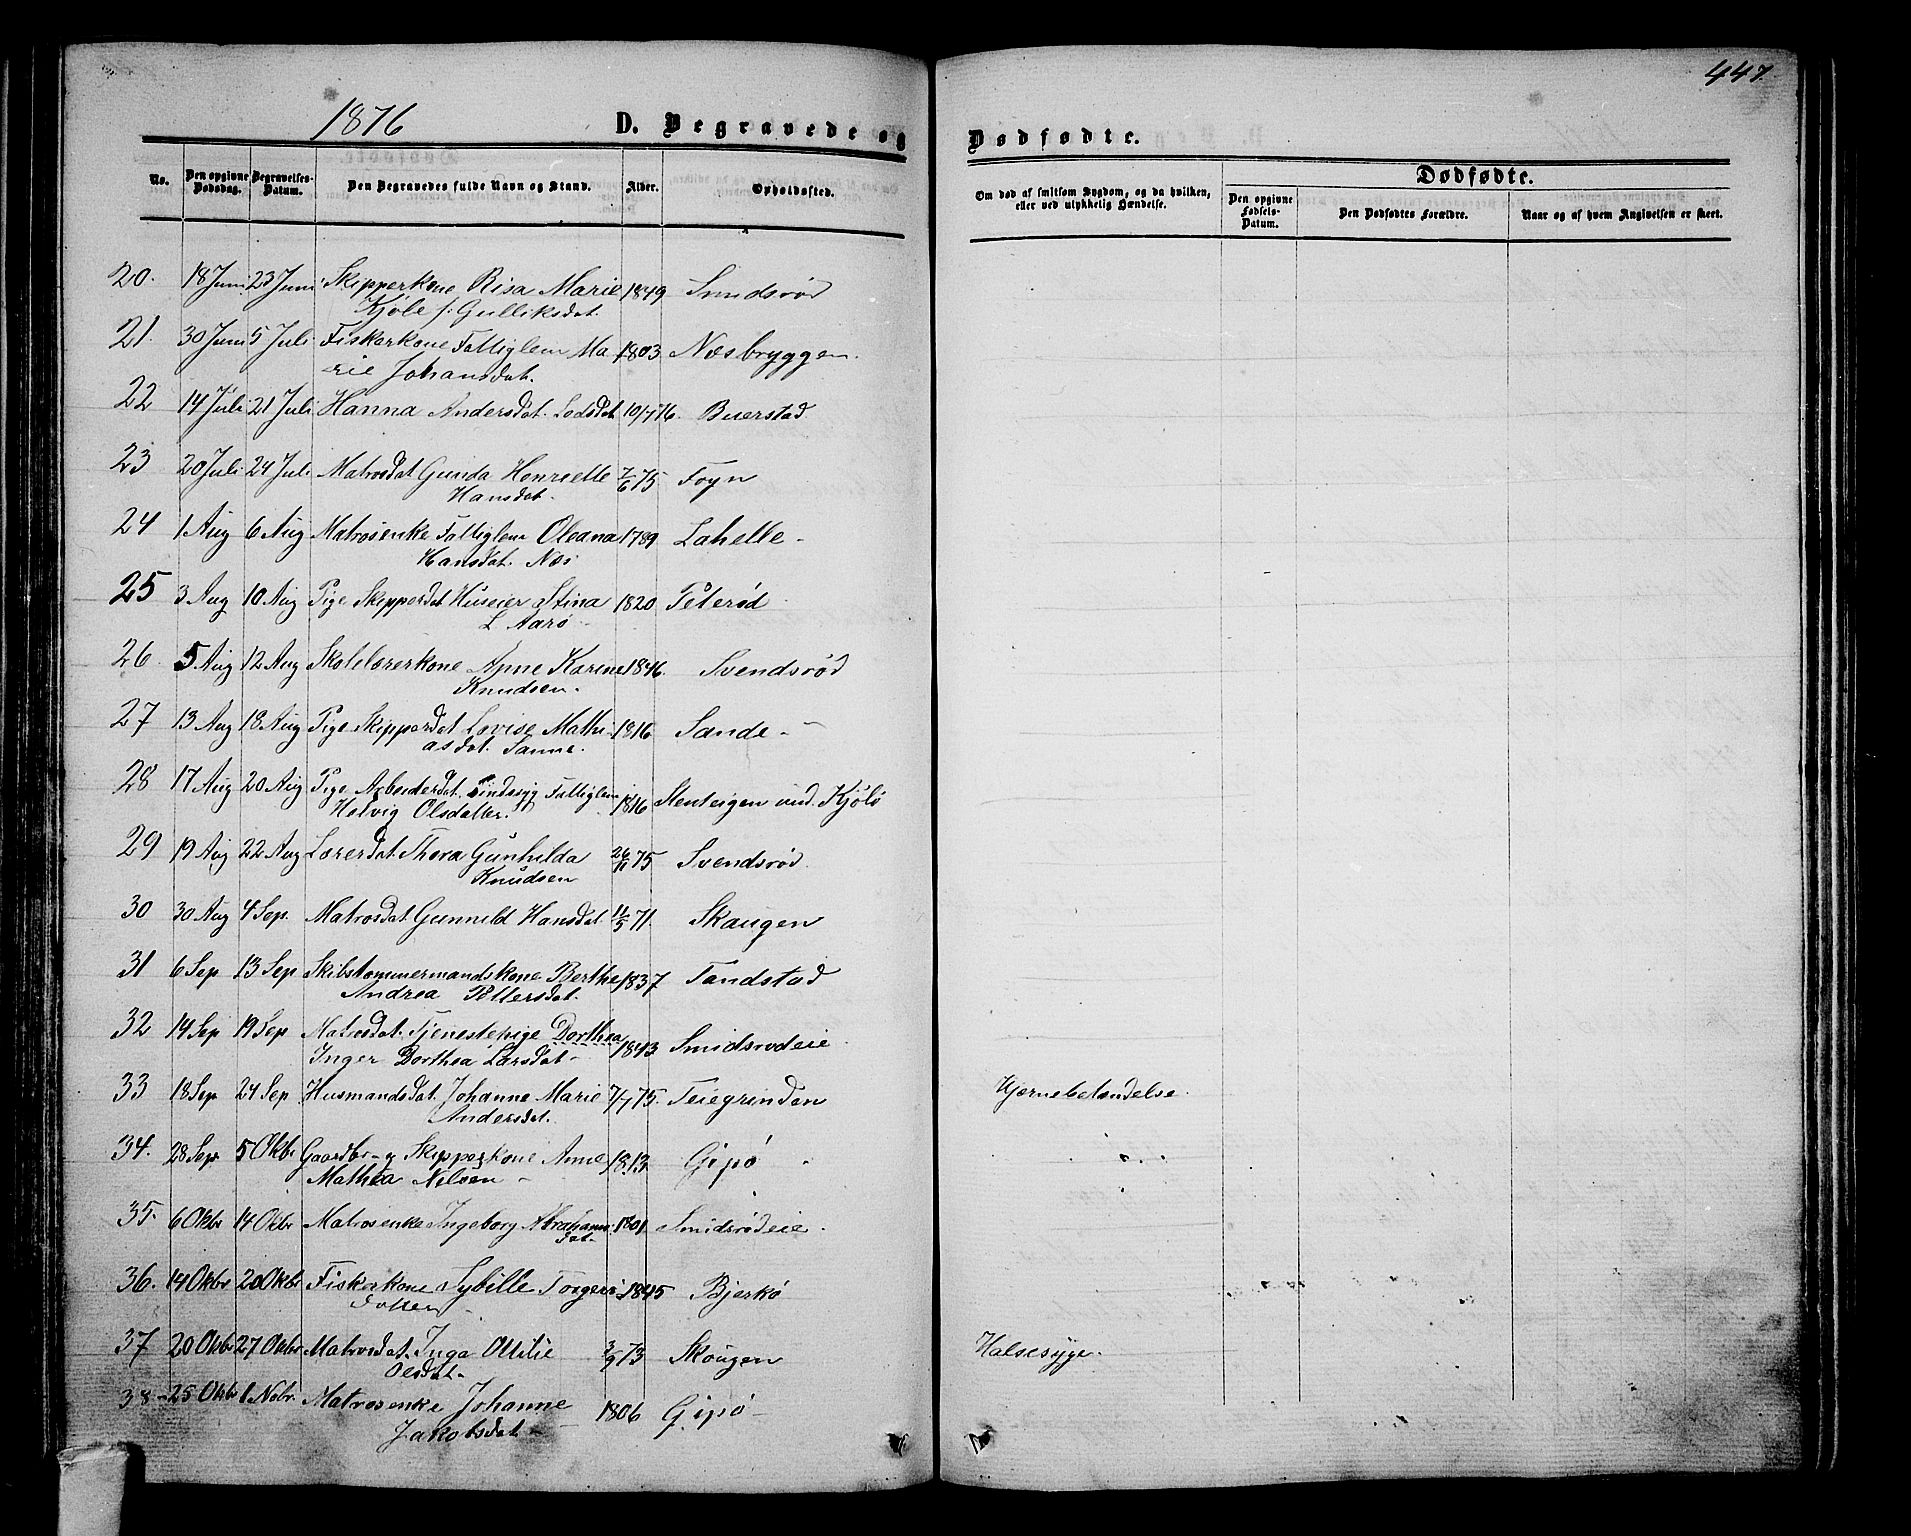 447.
1876
D. Begravede og
Dødfødte.
No.
Den opgivne Dødsdag.
Begravelses-Datum.
Den Begravedes fulde Navn og Stand.
Alder.
Opholdssted.
Om død af smitsom Sygdom, og da hvilken, eller ved ulykkelig Hændelse.
Dødfødte.
Den opgivne Fødsels-Datum.
Den Dødfødtes Forældre.
Naar og af hvem Angivelsen er skeet.
20. 18 Juni 23 Juni Skipperkone Risa Marie 1849 Smidsrød
Kjöle f. Gulliksdat.
21. 30 Juni 5 Juli Fiskerkone Fattiglem Ma 1803 Næsbryggen.
rie Johansdat.
22 14 Juli 21 Juli Hanna Andersdat. Lodsdat 10/7 76. Buerstad
23 20 Juli 24 Juli Matrosdat Gunda Henriette 7/6 75 Foyn
Hansdat.
24 1 Aug 6 Aug Matrosenke Fattiglem Oleana 1789 Lahelle
Hansdat. Næs
25 3 Aug 10 Aug Pige Skipperdat Huseier Stina 1820 Peterød
L Aarø
26. 5 Aug 12 Aug Skolelærerkone Anne Karine 1846. Svendsrød
Knudsen.
27 13 Aug 18 Aug Pige Skipperdat Lovise Mathi- 1816 Sande
asdat. Sanne.
28 17 Aug 20 Aug Pige Arbeiderdat. Sindssyg Fattiglem 1816 Stenteigen und. Kjölö
Helvig Olsdatter.
29 19 Aug 22 Aug Lærerdat. Thora Gunhilda 26/11 75 Svendsrød
Knudsen
30 30 Aug 4 Sep. Matrosdat Gunnild Hansdat. 11/5 71. Skaugen
31 6 Sep 13 Sep Skibstømmermandskone Berthe 1837 Tandstad
Andrea Pettersdat.
32 14 Sep 19 Sep Matrosdat. Tjenestepige Dorthea 1843 Smidsrødeie.
Inger Dorthea Larsdat
33 18 Sep 24 Sep Husmandsdat. Johanne Marie 7/7 75. Teiegrinden Hjernebetændelse.
Andersdat.
34. 28 Sep 5 Oktbr Gaardbr- g Skipperkone Anne 1813 Gipø
Mathea Nelsen
35. 6 Oktbr 14 Oktbr Matrosenke Ingeborg Abrahams 1801. Smidsrødeie.
dat.
36. 14 Oktbr 20 Oktbr Fiskerkone Sybille Torgers 1845 Bjerkø
datter
37 20 Oktbr 27 Oktbr Matrosdat. Inga Ottilie 3/9 73 Skougen Halsesyge.
Olsdat.
38 25 Oktbr 1 Nobr. Matrosenke Johanne 1806 Gipø
Jakobsdat.